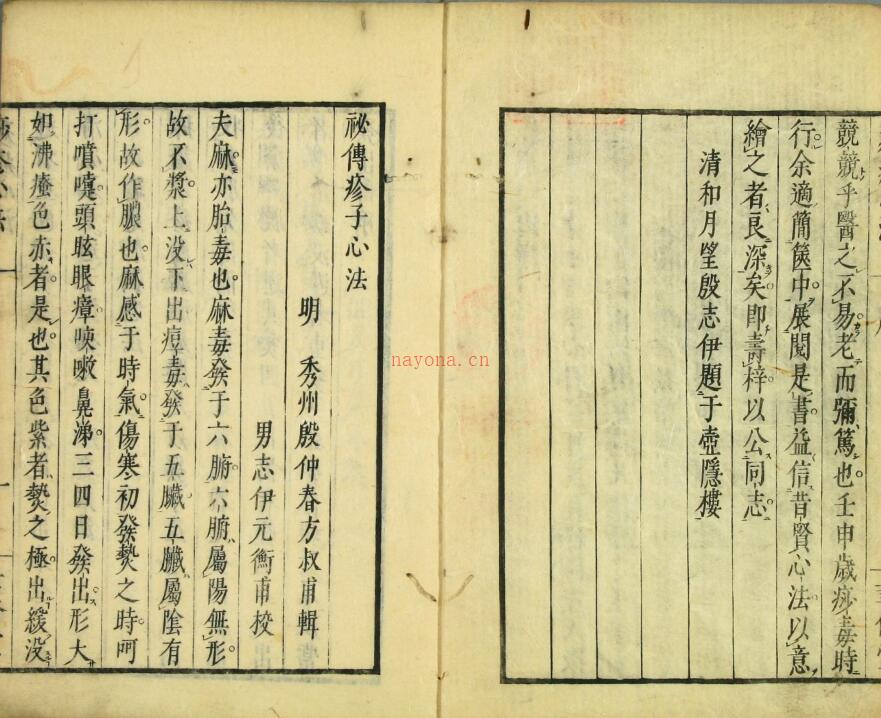 競競乎醫之不易老而彌篤也壬申歲痧毒時
行余適簡篋中展閱是書益信昔賢心法以意
繪之者良深矣即壽梓以公同志
清和月望殷志伊題于壺隱樓
祕傳疹子心法
明 秀州殷仲春方叔甫輯
男志伊元衡甫校
夫麻亦胎毒也麻毒發于六腑六腑屬陽無形
故不漿上没下出痘毒發于五臟五臟屬陰有
形故作膿也麻感于時氣傷寒初發熱之時呵
打噴嚏頭眩眼瘴咳嗽鼻涕三四日發出形大
如沸瘡色赤者是也其色紫者熱之極出緩没
nayona.cn